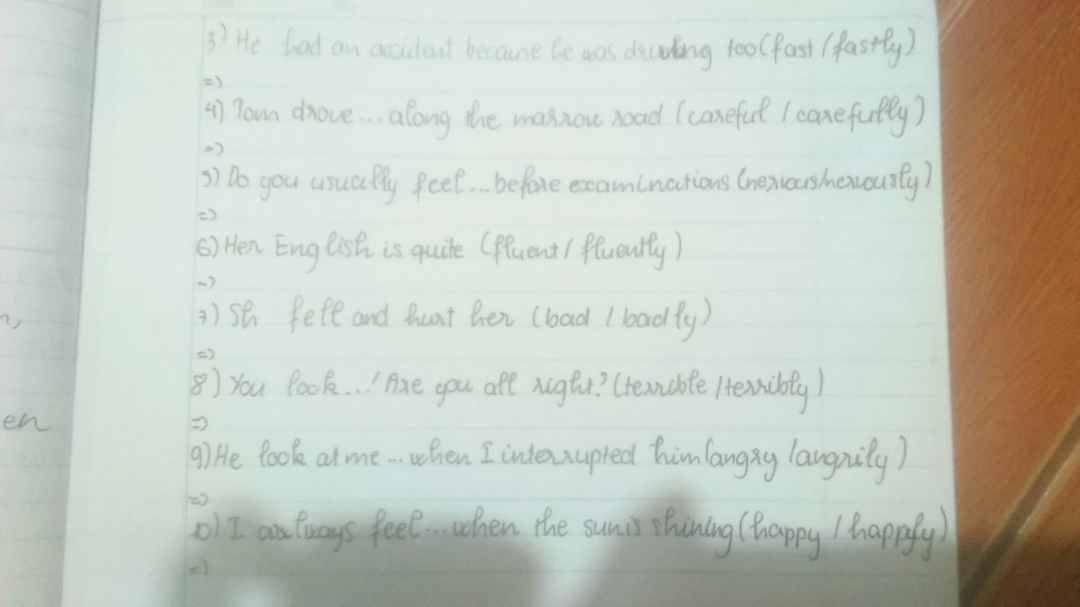 3) He had an accident because he was driving too (fast / fastly)
=)
4) Tom drove... along the marrou road (careful / carefully)
=)
5) Do you usually feel... before examinations (nervous/nervously)
=)
6) Her English is quite (fluent / fluently)
=)
7) Sh fell and hurt her (bad / badly)
=)
8) You look...! Are you all right? (terrible / terribly)
=)
n,
en
9) He look at me... when I interrupted him (angry / angrily)
=)
10) I always feel... when the sun is shining (happy / happyly)
=)